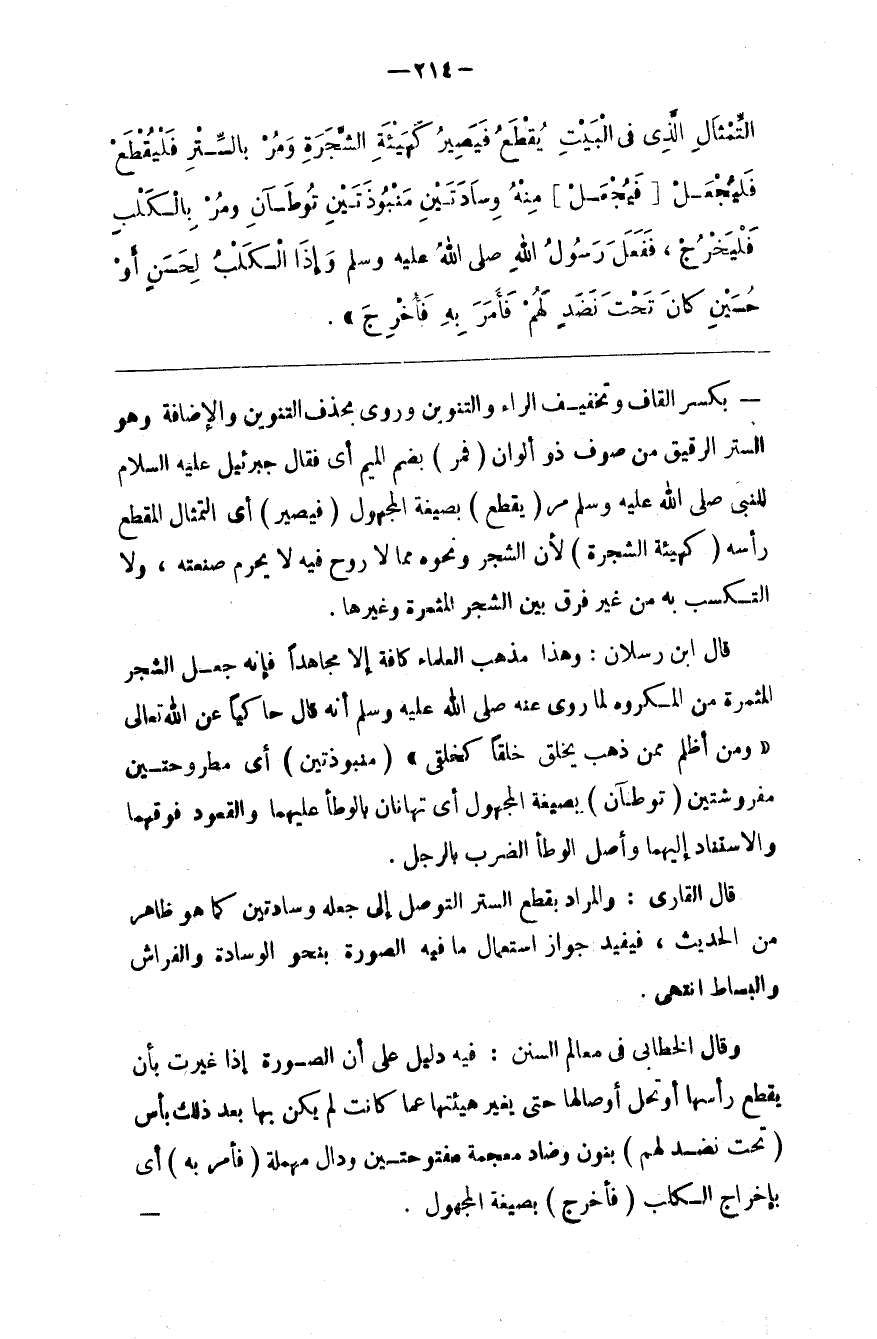 — ٢١٤ —
التِّمْثَالِ الَّذِى فى الْبَيْتِ يُقْطَعُ فَيَصِيرُ كَهَيْئَةِ الشَّجَرَةِ وَمُرْ بالسِّـتْرِ فَلْيُقْطَعْ
فَليُجْعَـلْ [ فَيُجْعَـلْ ] مِنْهُ وِسَادَتَـيْنِ مَنْبُوذَتَـيْنِ تُوطَـآنِ ومُرْ بِالْـكَلْبِ
فَلْيَخْرُجْ ، فَفَعَلَ رَسُولُ اللهِ صلى اللهُ عليه وسلم وَإِذَا الْـكَلْبُ لِحَسَنٍ أَوْ
حُسَيْنٍ كَانَ تَحْتَ نَضَدٍ لَهُمْ فَأَمَرَ بِهِ فَأُخْرِجَ » .
— بكسر القاف وتخفيـف الراء والتنوين وروى بحذف التنوين والإضافة وهو
الستر الرقيق من صوف ذو ألوان ( فمر ) بضم الميم أى فقال جبرئيل عليه السلام
للنبى صلى الله عليه وسلم مر ( يقطع ) بصيغة المجهول ( فيصير ) أى التمثال المقطع
رأسه ( كهيئة الشجرة ) لأن الشجر ونحوه مما لا روح فيه لا يحرم صنعته ، ولا
التـكسب به من غير فرق بين الشجر المثمرة وغيرها .
قال ابن رسلان : وهذا مذهب العلماء كافة إلا مجاهداً فإنه جعـل الشجر
المثمرة من المـكروه لما روى عنه صلى الله عليه وسلم أنه قال حاكياً عن الله تعالى
« ومن أظلم ممن ذهب يخلق خلقاً كخلقى » ( منبوذتين ) أى مطروحتـين
مفروشتين ( توطآن ) بصيغة المجهول أى تهانان بالوطأ عليهما والقعود فوقهما
والاستناد إليهما وأصل الوطأ الضرب بالرجل .
قال القارى : والمراد بقطع الستر التوصل إلى جعله وسادتين كما هو ظاهر
من الحديث ، فيفيد جواز استعمال ما فيه الصورة بنحو الوسادة والفراش
والبساط انتهى .
وقال الخطابى فى معالم السنن : فيه دليل على أن الصـورة إذا غيرت بأن
يقطع رأسها أو تحل أوصالها حتى يغير هيئتها عما كانت لم يكن بها بعد ذلك بأس
( تحت نضـد لهم ) بنون وضاد معجمة مفتوحتـين ودال مهملة ( فأمر به ) أى
بإخراج الـكلب ( فأخرج ) بصيغة المجهول . —